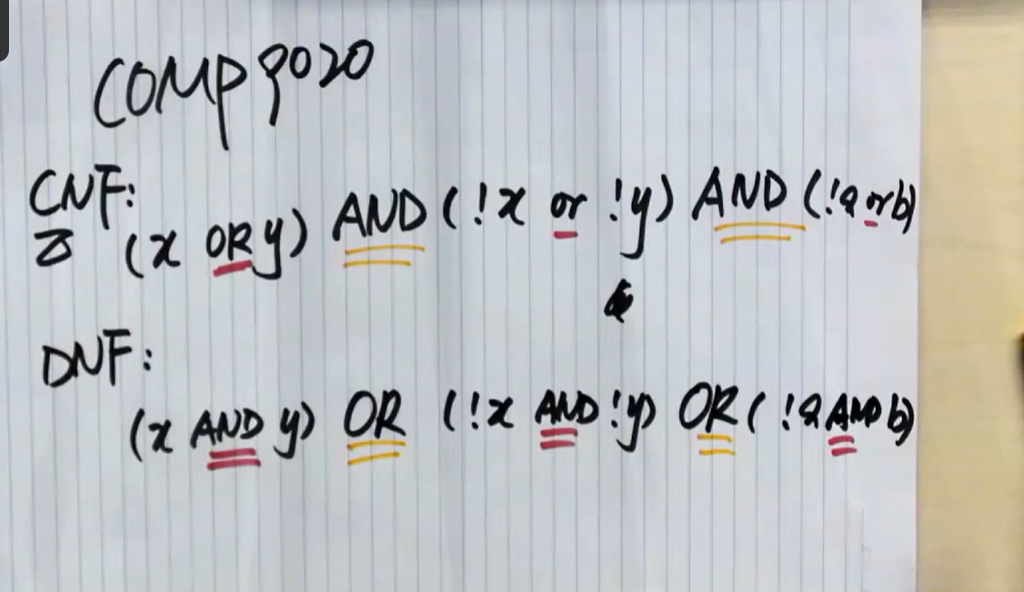 COMP9020
CNF:
(x OR y) AND (!x or !y) AND (!a or b)
DNF:
(x AND y) OR (!x AND !y) OR (!a AND b)